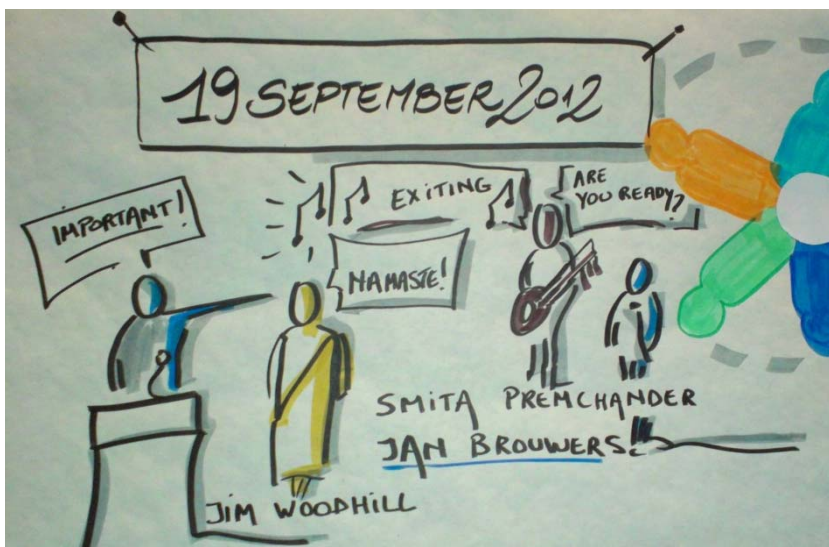 19 SEPTEMBER 2012
IMPORTANT!
EXITING
ARE
YOU READY?
NAMASTE!
SMITA PREMCHANDER
JAN BROUWERS
JIM WOODHILL